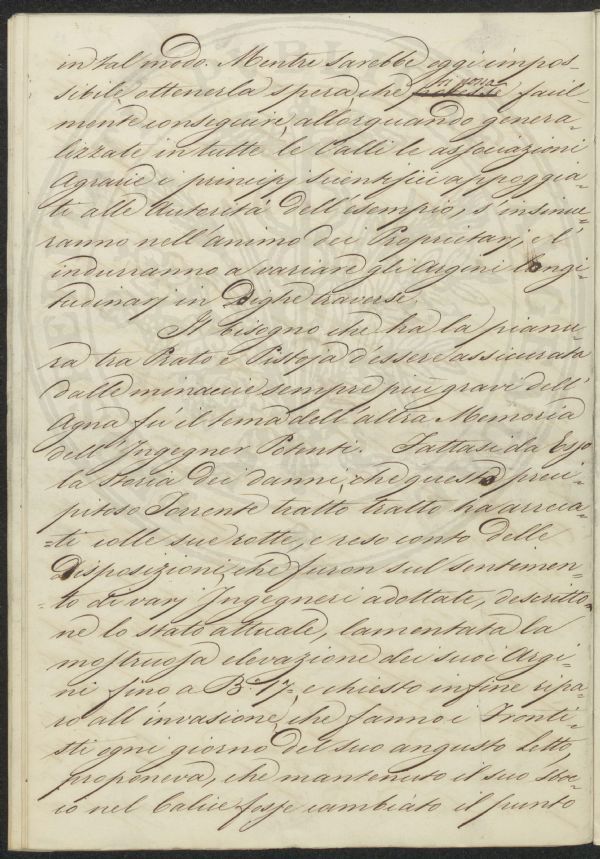 in tal modo. Mentre sarebbe oggi impos-
sibile ottenerla spera, che si possa facil-
mente conseguire, allorquando genera-
lizzate in tutte le Valli le associazioni
Agrarie i principj scientifici appoggia-
ti alle Autorità dell'esempio, s'insinue-
ranno nell'animo dei Proprietarj, e l'
indurranno a variare gli Argini longi-
tudinarj in Dighe traverse.
Il bisogno che ha la pianu-
ra tra Prato e Pistoja d'essere assicurata
dalle minaccie sempre più gravi dell'
Agna fù il tema dell'altra Memoria
dell'Ingegner Potenti. Fattasi da Esso
la storia dei danni, che questo preci-
pitoso Torrente tratto tratto ha arreca-
=ti colle sue rotte, e reso conto delle
Disposizioni, che furon sul sentimen-
=to di varj Ingegneri adottate, descritto-
ne lo stato attuale, lamentata la
mostruosa elevazione dei suoi Argi-
ni fino a B.a 17= e chiesto infine ripa-
ro all'invasione, che fanno i Fronti-
sti ogni giorno del suo angusto Letto,
proponeva, che mantenuto il suo sboc-
co nel Calice fosse cambiato il punto